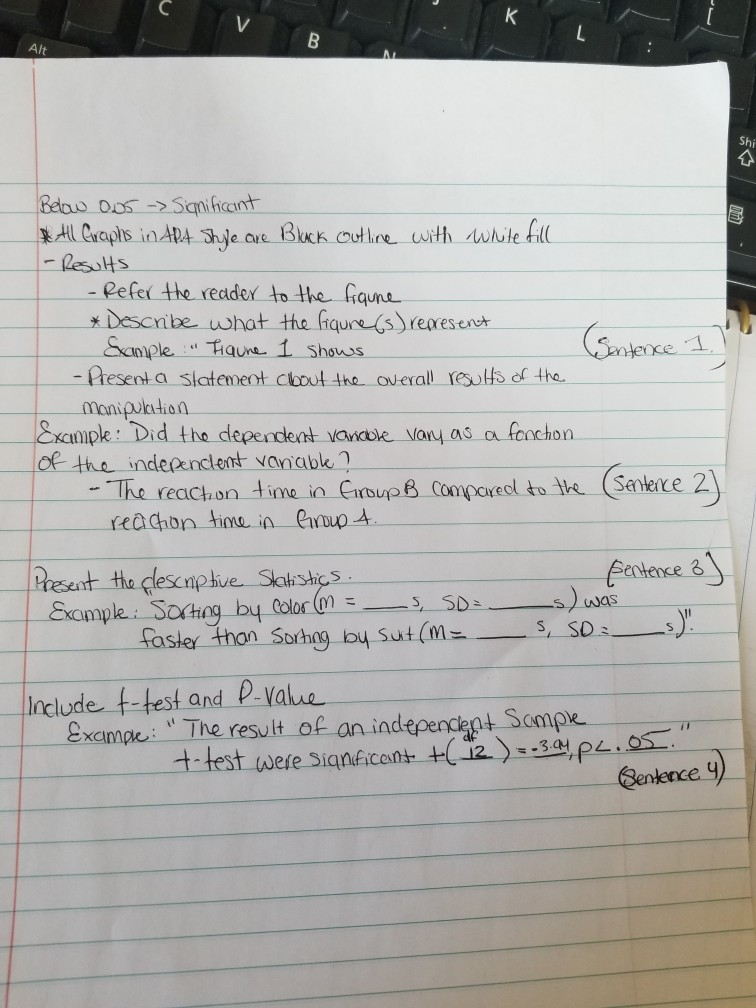 C V B N K L :
Alt
Shi
Below 0.05 -> Significant
* All Graphs in APA Style are Black outline with white fill
- Results
- Refer the reader to the figure
* Describe what the figure(s) represent
Example: " Figure 1 shows (Sentence 1.)
- Present a statement about the overall results of the
manipulation
Example: Did the dependent variable vary as a fonction
of the independent variable?
- The reaction time in Group B compared to the (Sentence 2)
reaction time in Group A.
Present the descriptive Statistics. (Sentence 3)
Example: "Sorting by color (M = ____s, SD = ____s) was
faster than sorting by suit (M = ____ s, SD = ____s)".
Include t-test and P-value
Example: "The result of an independent Sample
df
t-test were significant t( 12 ) = -3.04, p < .05."
(Sentence 4)